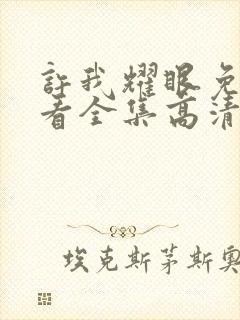 許我耀眼免
看全集高清
埃克斯茅斯奧